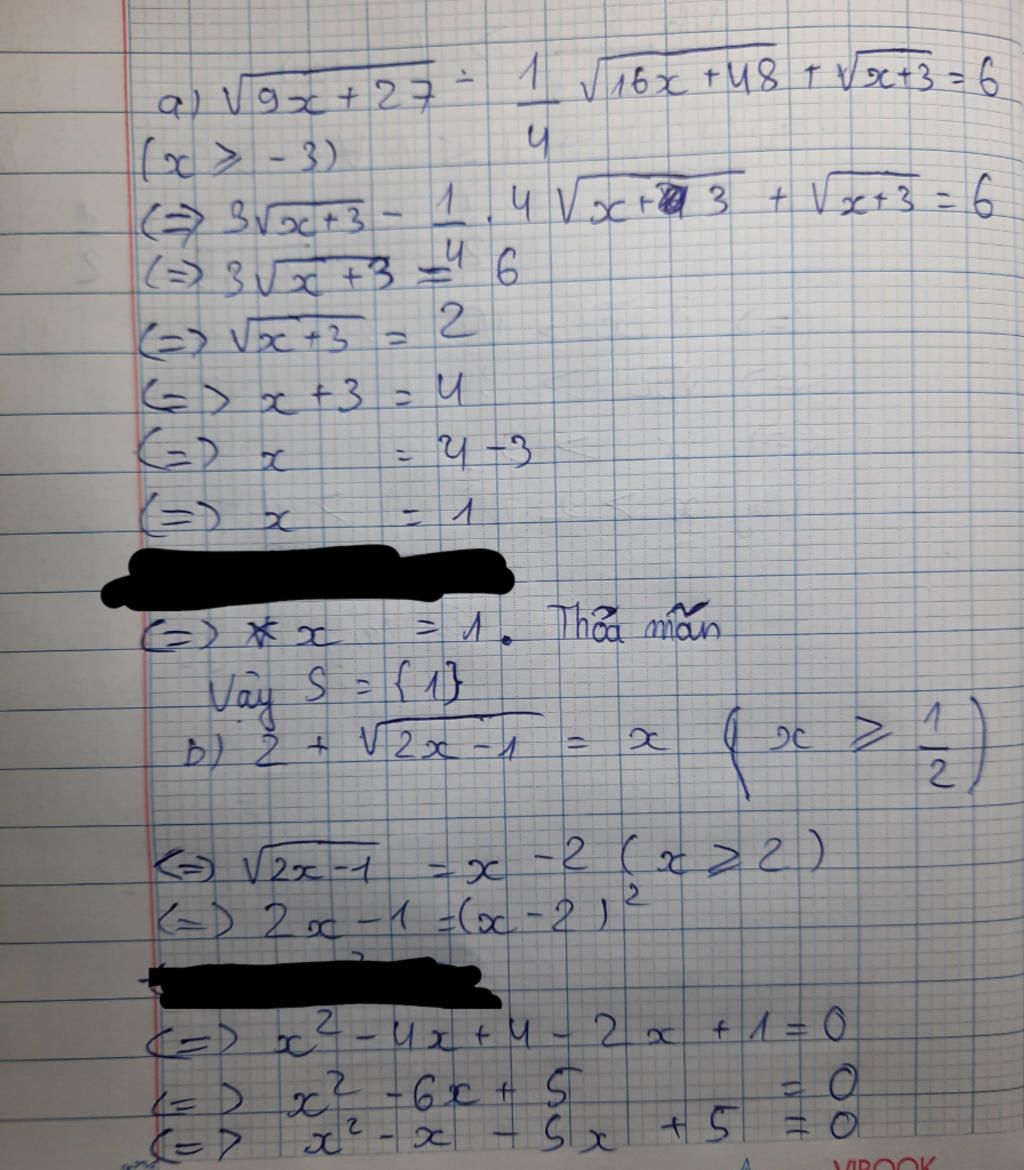 a) √(9x + 27) - 1/4 √(16x + 48) + √(x+3) = 6
(x ⩾ -3)
(=) 3√(x+3) - 1/4 . 4 √(x+3) + √(x+3) = 6
(=) 3√(x+3) = 6
(=) √(x+3) = 2
(=) x + 3 = 4
(=) x = 4 - 3
(=) x = 1
(=) x = 1. Thỏa mãn
Vậy S = {1}
b) 2 + √(2x - 1) = x (x ⩾ 1/2)
(=) √(2x-1) = x - 2 (x ⩾ 2)
(=) 2x - 1 = (x - 2)²
(=) x² - 4x + 4 - 2x + 1 = 0
(=) x² - 6x + 5 = 0
(=) x² - x - 5x + 5 = 0
VIBOOK